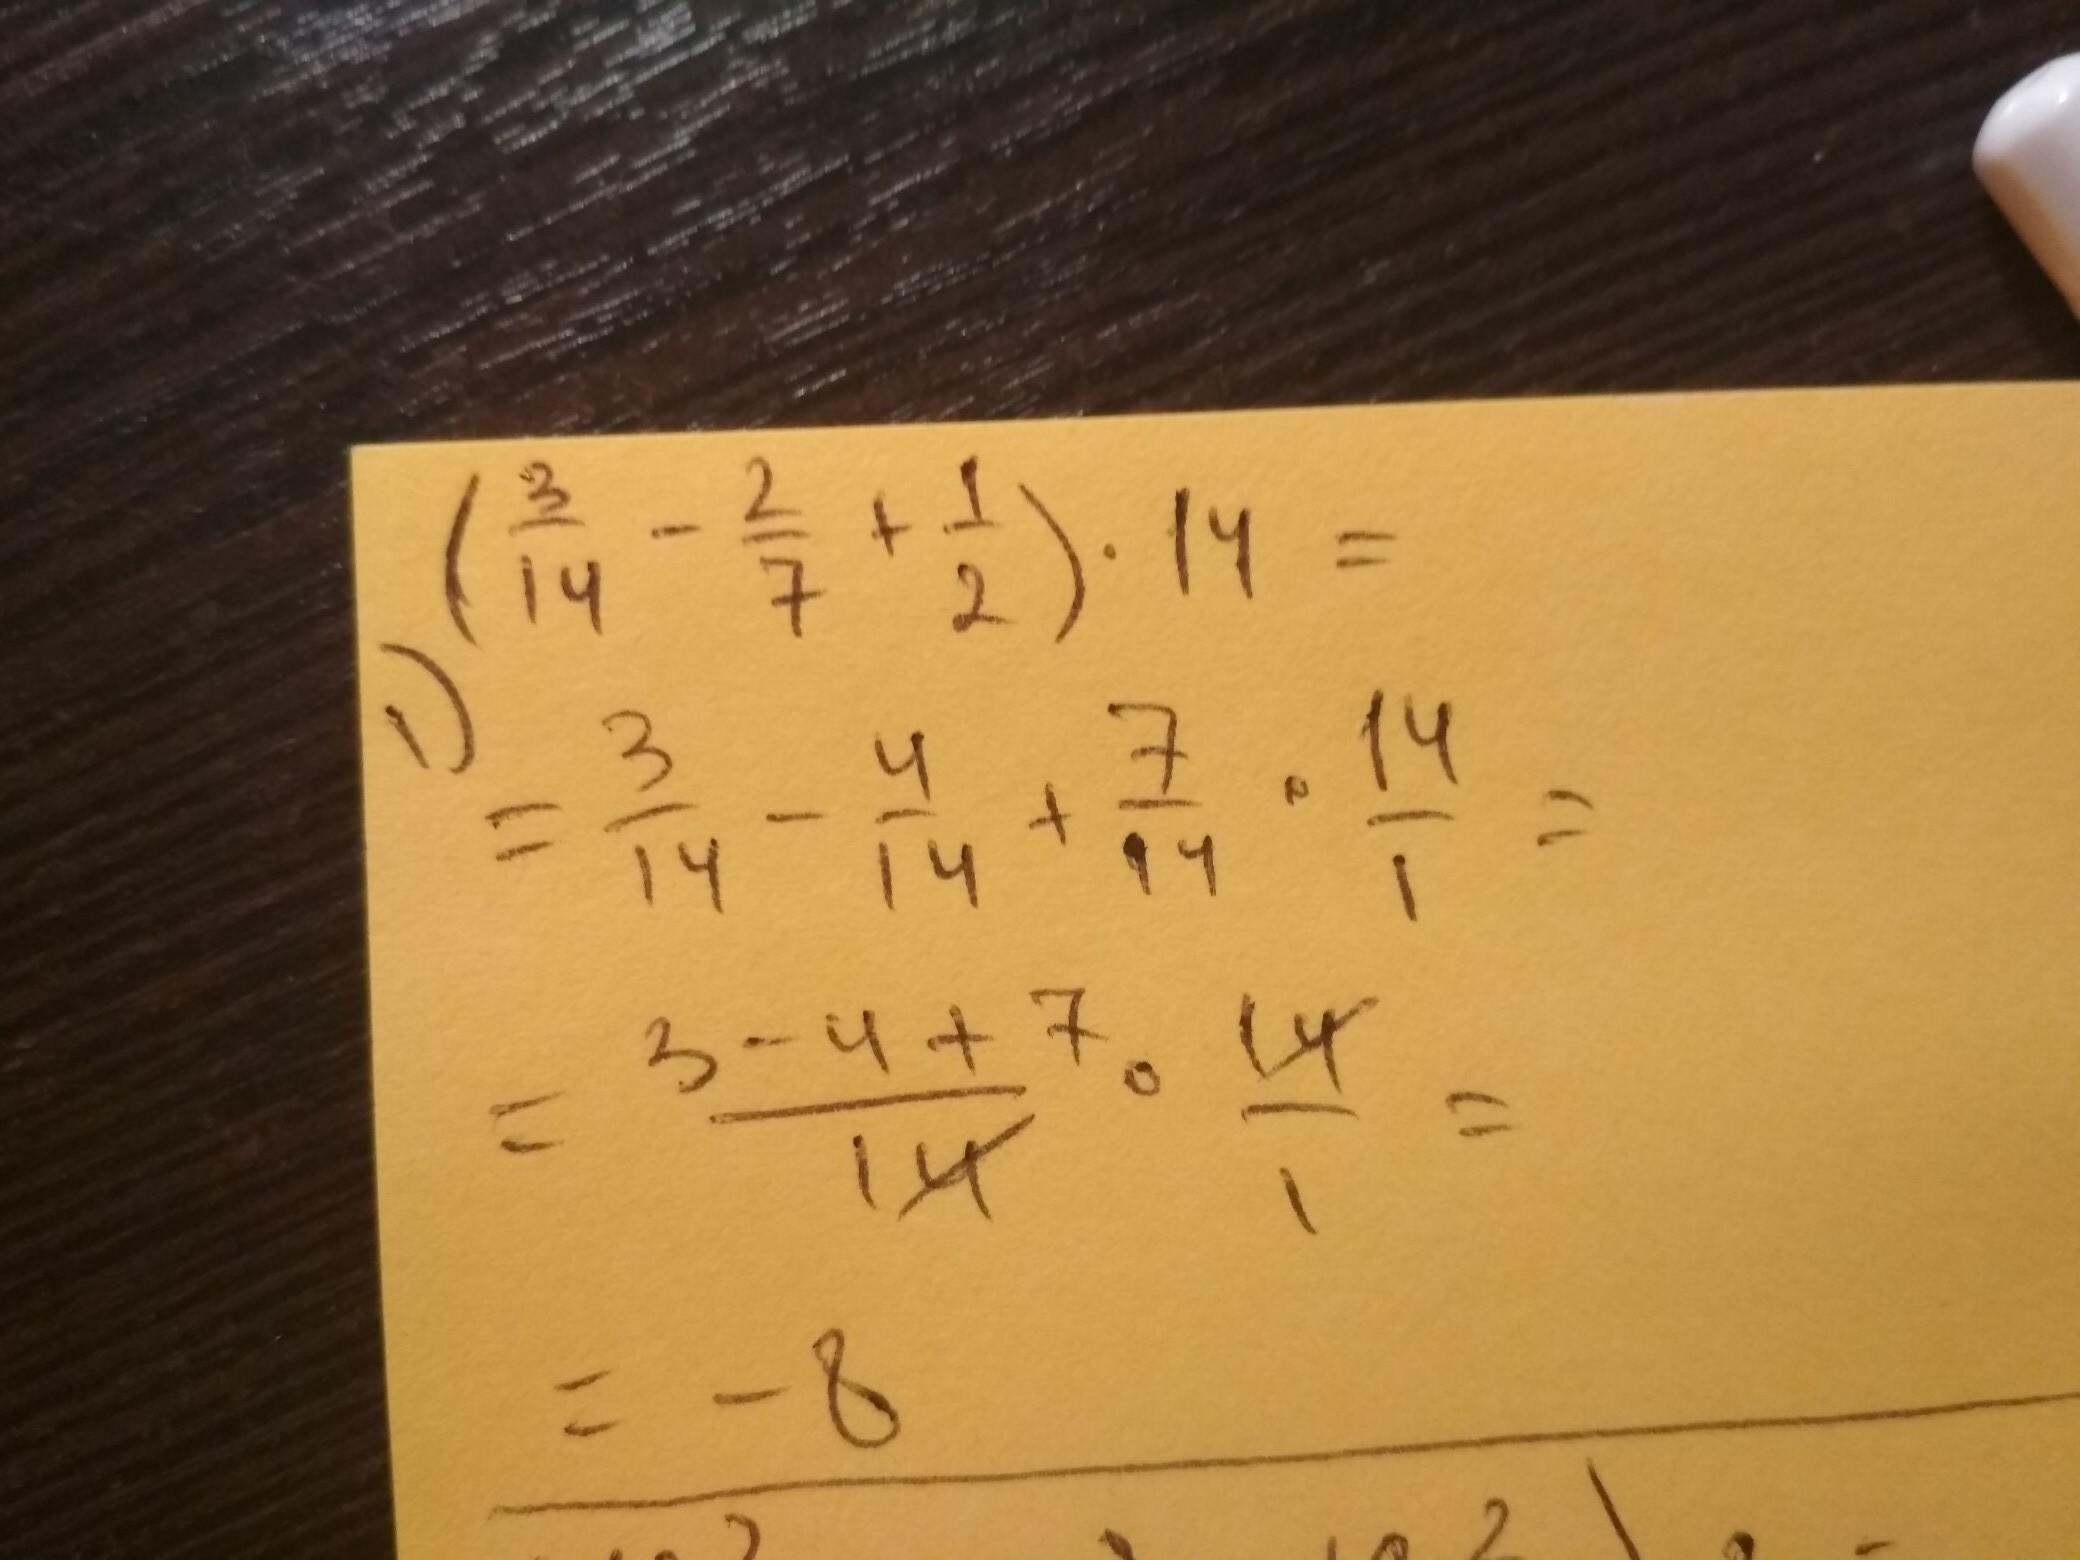 (3/14 - 2/7 + 1/2) · 14 =
1)
= 3/14 - 4/14 + 7/14 · 14/1 =
= 3-4+7/14 · 14/1 =
= -8